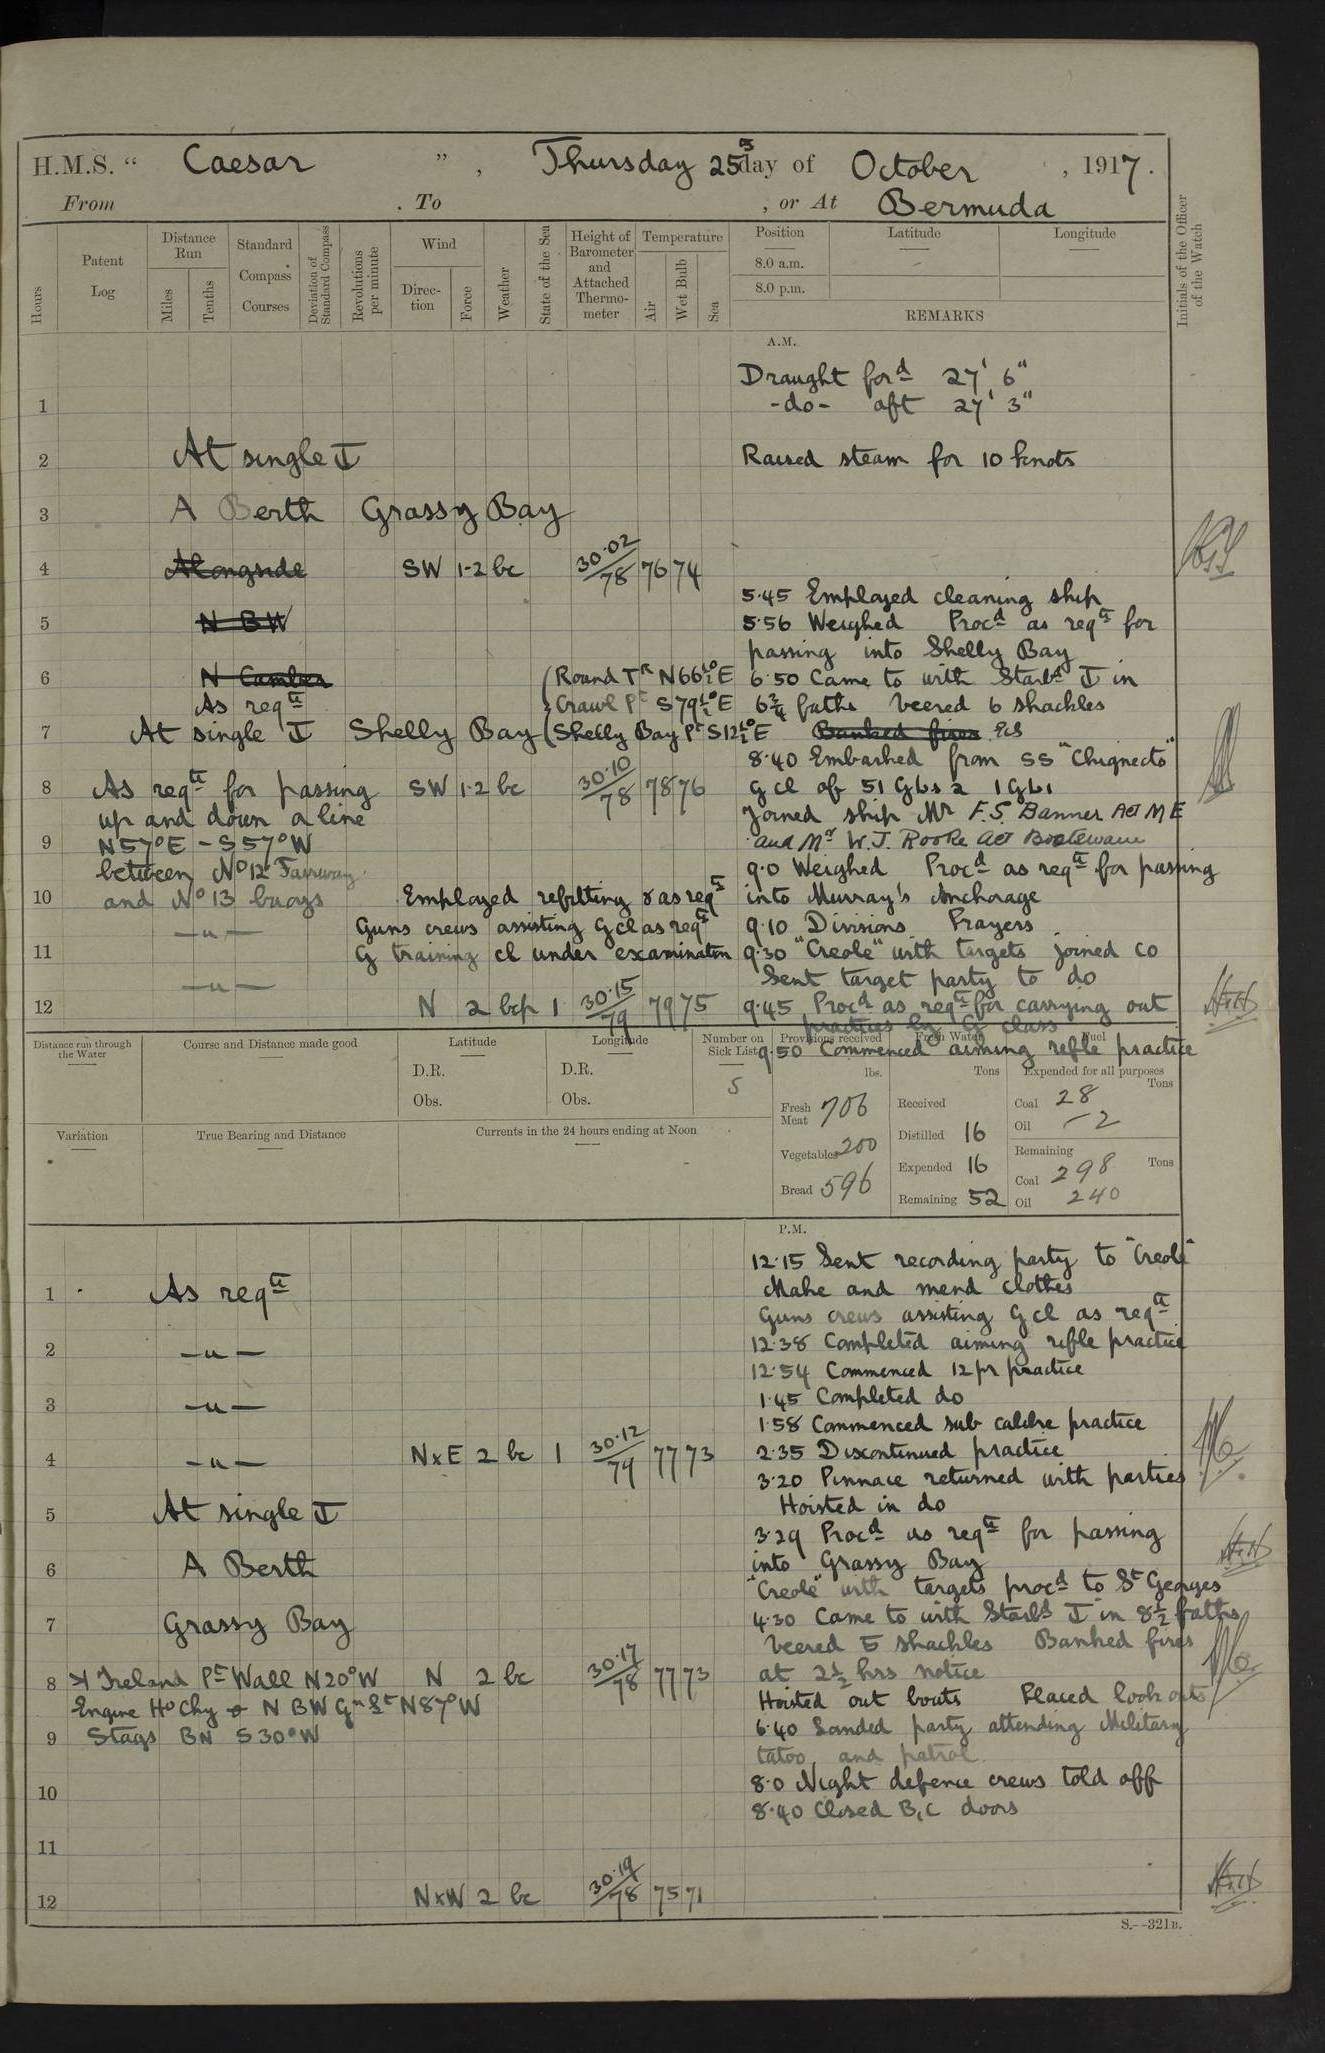 H.M.S. “ Caesar ” , Thursday 25th day of October , 1917 .
From . To , or At Bermuda
Hours
Patent Log
Distance Run
Miles
Tenths
Standard Compass Courses
Deviation of Standard Compass
Revolutions per minute
Wind
Direction
Force
Weather
State of the Sea
Height of Barometer and Attached Thermometer
Temperature
Air
Wet Bulb
Sea
Position
8.0 a.m.
8.0 p.m.
Latitude
Longitude
REMARKS
Initials of the Officer of the Watch
A.M.
Draught ford 27' 6"
1 -do- aft 27' 3"
2 At single Raised steam for 10 knots
3 A Berth Grassy Bay
4 Alongside SW 1-2 bc 30·02/78 76 74
5·45 Employed cleaning ship
5 N BW 5·56 Weighed Procd as reqte for
passing into Shelly Bay
6 N Camber (Round TR N66½°E 6·50 Came to with Starbd in
As reqte Crawl Pt S79½°E 6¾ faths veered 6 shackles
7 At single Shelly Bay (Shelly Bay Pt S12½°E Banked fires
8·40 Embarked from SS "Chignecto"
8 As reqte for passing SW 1-2 bc 30·10/78 78 76 G cl of 51 Gbs 2 1 Gb1
up and down a line Joined ship Mr F.S. Banner Act M E
9 N57°E - S57°W and Mr W.J. Rooke act Boatswain
between No 12 Fairway 9·0 Weighed Procd as reqte for passing
10 and No 13 buoys Employed refitting & as reqte into Murray's Anchorage
-"- Guns crews assisting G cl as reqte 9·10 Divisions Prayers
11 G training cl under examination 9·30 "Creole" with targets joined co
-"- Sent target party to do
12 N 2 bcp 1 30·15/79 79 75 9·45 Procd as reqte for carrying out
practices by G class
9·50 Commenced aiming rifle practice
Distance run through the Water
Course and Distance made good
Latitude
D.R.
Obs.
Longitude
D.R.
Obs.
Number on Sick List
5
Provisions received
lbs.
Fresh Meat 706
Vegetables 200
Bread 596
Fresh Water
Tons
Received
Distilled 16
Expended 16
Remaining 52
Fuel
Expended for all purposes
Tons
Coal 28
Oil - 2
Remaining
Tons
Coal 298
Oil 240
Variation
True Bearing and Distance
Currents in the 24 hours ending at Noon
P.M.
12·15 Sent recording party to "Creole"
1 As reqte Make and mend clothes
Guns crews assisting G cl as reqte
2 -"- 12·38 Completed aiming rifle practice
12·54 Commenced 12 pr practice
3 -"- 1·45 Completed do
1·58 Commenced sub calibre practice
4 -"- NxE 2 bc 1 30·12/79 77 73 2·35 Discontinued practice
3·20 Pinnace returned with parties
5 At single Hoisted in do
3·29 Procd as reqte for passing
6 A Berth into Grassy Bay
"Creole" with targets procd to St Georges
7 Grassy Bay 4·30 Came to with Starbd in 8½ faths
veered 5 shackles Banked fires
8 Ireland Pt Wall N20°W N 2 bc 30·17/78 77 73 at 2½ hrs notice
Engine Ho Chy N BW Gn Lt N87°W Hoisted out boats Placed look outs
9 Stags BN S30°W 6·40 Landed party attending Military
tatoo and patrol
10 8·0 Night defence crews told off
8·40 Closed B,C doors
11
12 NxW 2 bc 30·19/78 75 71
S.--321B.